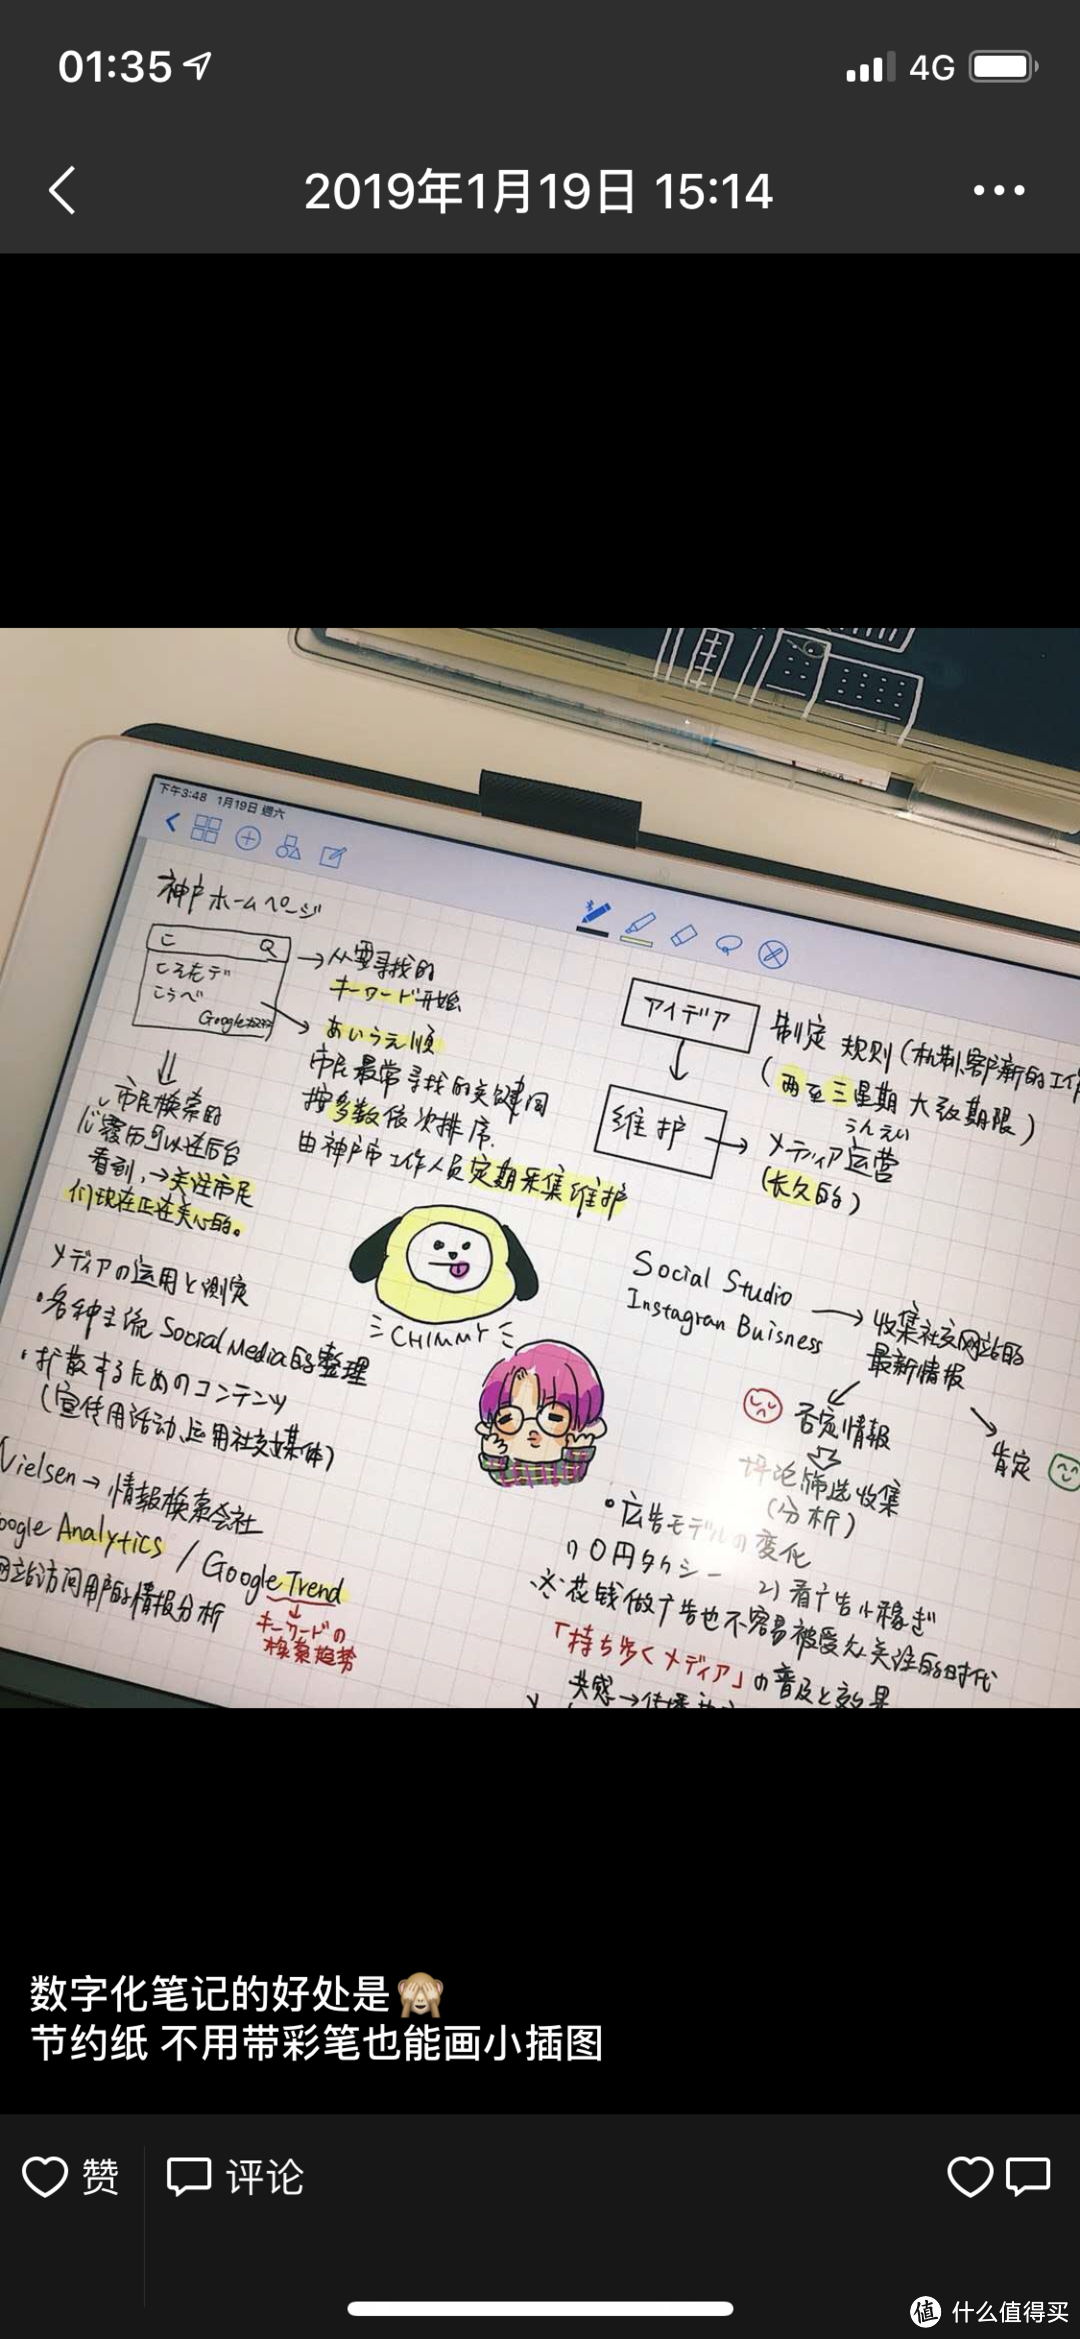 01:35
4G
2019年1月19日 15:14
下午3:48 1月19日 週六
神戸ホームページ
こ Q
こそもデ
こうべ
Google
→从要寻找的
キーワード开始
あいうえ順
市民最常寻找的关键词
按多数依次排序.
由神户市工作人员定期采集维护
市民検索的
履历可以在后台
看到,→关注市民
们现在正在关心的。
メディアの运用と測定
・各种主流 Social Media的整理
・扩散するためのコンテンツ
(宣传用活动、运用社交媒体)
Nielsen→情報検索会社
oogle Analytics / Google Trend
网站访问用户的情报分析
キーワードの
検索趋势
アイデア
制定 规则(机制、
(两至三星期 大致期限)
维护
うんえい
メディア运营
(长久的)
CHIMMY
Social Studio
Instagran Buisness
→收集社交网站的
最新情報
否定情報
肯定
评论筛选收集
(分析)
・広告モデルの変化
0円タクシー 2)看广告小稼ぎ
※花钱做广告也不容易被受众关注的时代
「持ち歩くメディア」の普及と効果
共感→
数字化笔记的好处是🙈
节约纸 不用带彩笔也能画小插图
赞 评论
值 什么值得买